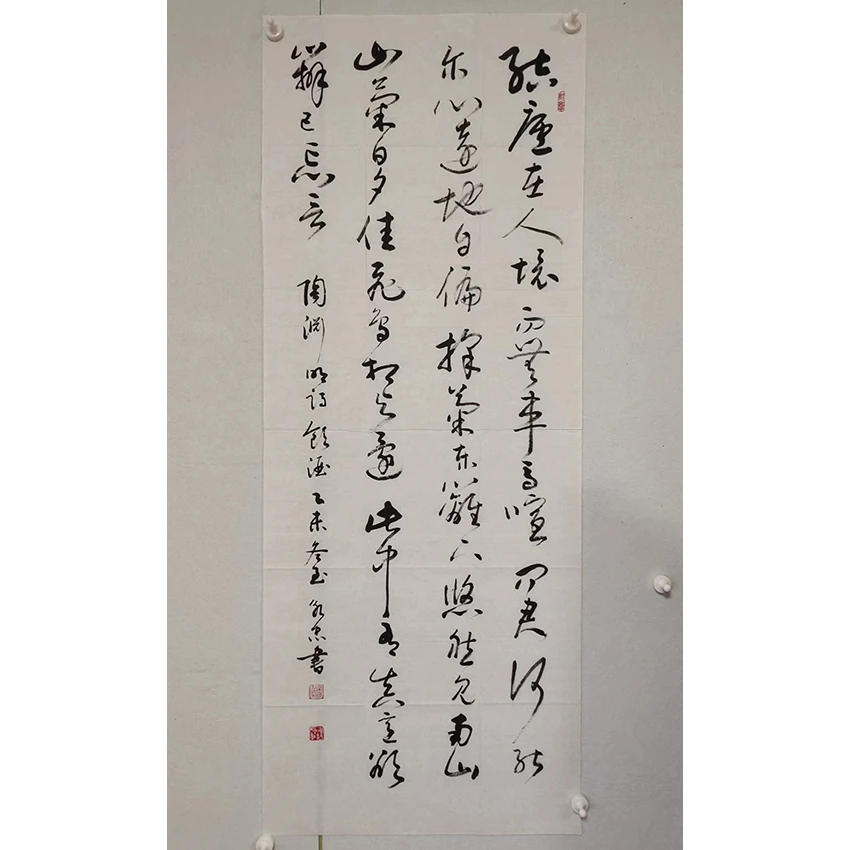 結廬在人境而無車馬喧問君何能
尔心遠地自偏採菊東籬下悠然見南山
山氣日夕佳飛鳥相與還此中有真意欲
辨已忘言 陶渊明詩飲酒乙未冬 書